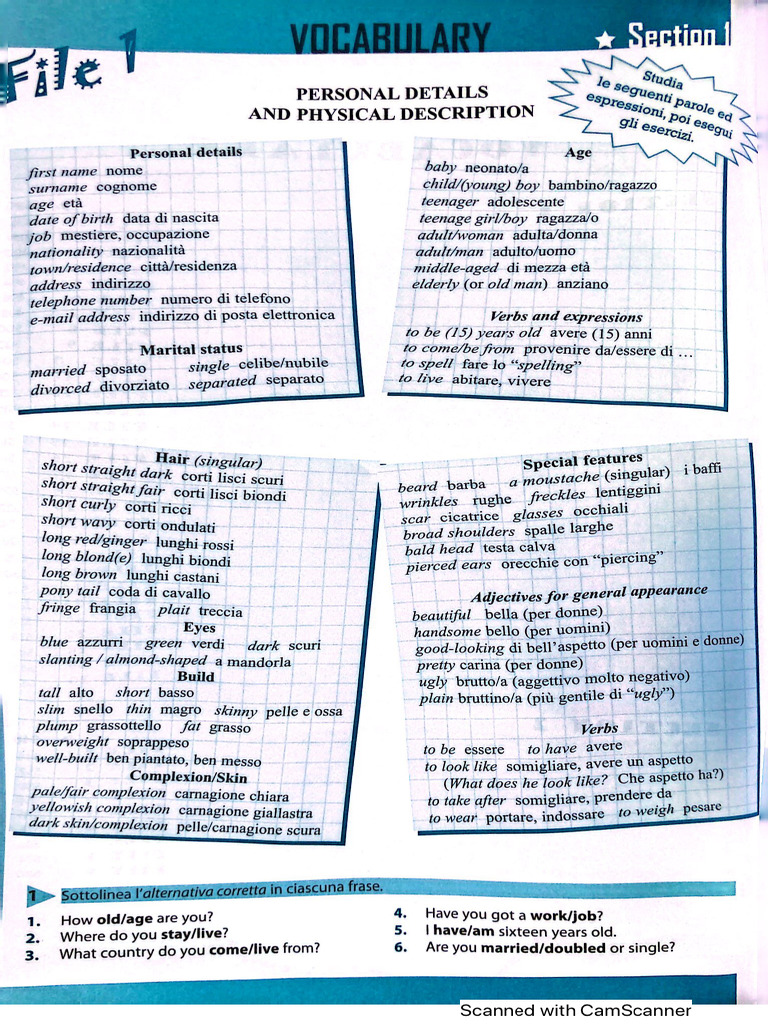 File 1
VOCABULARY
★ Section 1
Studia
le seguenti parole ed
espressioni, poi esegui
gli esercizi.
PERSONAL DETAILS
AND PHYSICAL DESCRIPTION
Personal details
first name nome
surname cognome
age età
date of birth data di nascita
job mestiere, occupazione
nationality nazionalità
town/residence città/residenza
address indirizzo
telephone number numero di telefono
e-mail address indirizzo di posta elettronica
Marital status
married sposato single celibe/nubile
divorced divorziato separated separato
Age
baby neonato/a
child/(young) boy bambino/ragazzo
teenager adolescente
teenage girl/boy ragazza/o
adult/woman adulta/donna
adult/man adulto/uomo
middle-aged di mezza età
elderly (or old man) anziano
Verbs and expressions
to be (15) years old avere (15) anni
to come/be from provenire da/essere di ...
to spell fare lo "spelling"
to live abitare, vivere
Hair (singular)
short straight dark corti lisci scuri
short straight fair corti lisci biondi
short curly corti ricci
short wavy corti ondulati
long red/ginger lunghi rossi
long blond(e) lunghi biondi
long brown lunghi castani
pony tail coda di cavallo
fringe frangia plait treccia
Eyes
blue azzurri green verdi dark scuri
slanting / almond-shaped a mandorla
Build
tall alto short basso
slim snello thin magro skinny pelle e ossa
plump grassottello fat grasso
overweight soprappeso
well-built ben piantato, ben messo
Complexion/Skin
pale/fair complexion carnagione chiara
yellowish complexion carnagione giallastra
dark skin/complexion pelle/carnagione scura
Special features
beard barba a moustache (singular) i baffi
wrinkles rughe freckles lentiggini
scar cicatrice glasses occhiali
broad shoulders spalle larghe
bald head testa calva
pierced ears orecchie con "piercing"
Adjectives for general appearance
beautiful bella (per donne)
handsome bello (per uomini)
good-looking di bell'aspetto (per uomini e donne)
pretty carina (per donne)
ugly brutto/a (aggettivo molto negativo)
plain bruttino/a (più gentile di "ugly")
Verbs
to be essere to have avere
to look like somigliare, avere un aspetto
(What does he look like? Che aspetto ha?)
to take after somigliare, prendere da
to wear portare, indossare to weigh pesare
1 Sottolinea l'alternativa corretta in ciascuna frase.
1. How old/age are you?
2. Where do you stay/live?
3. What country do you come/live from?
4. Have you got a work/job?
5. I have/am sixteen years old.
6. Are you married/doubled or single?
Scanned with CamScanner